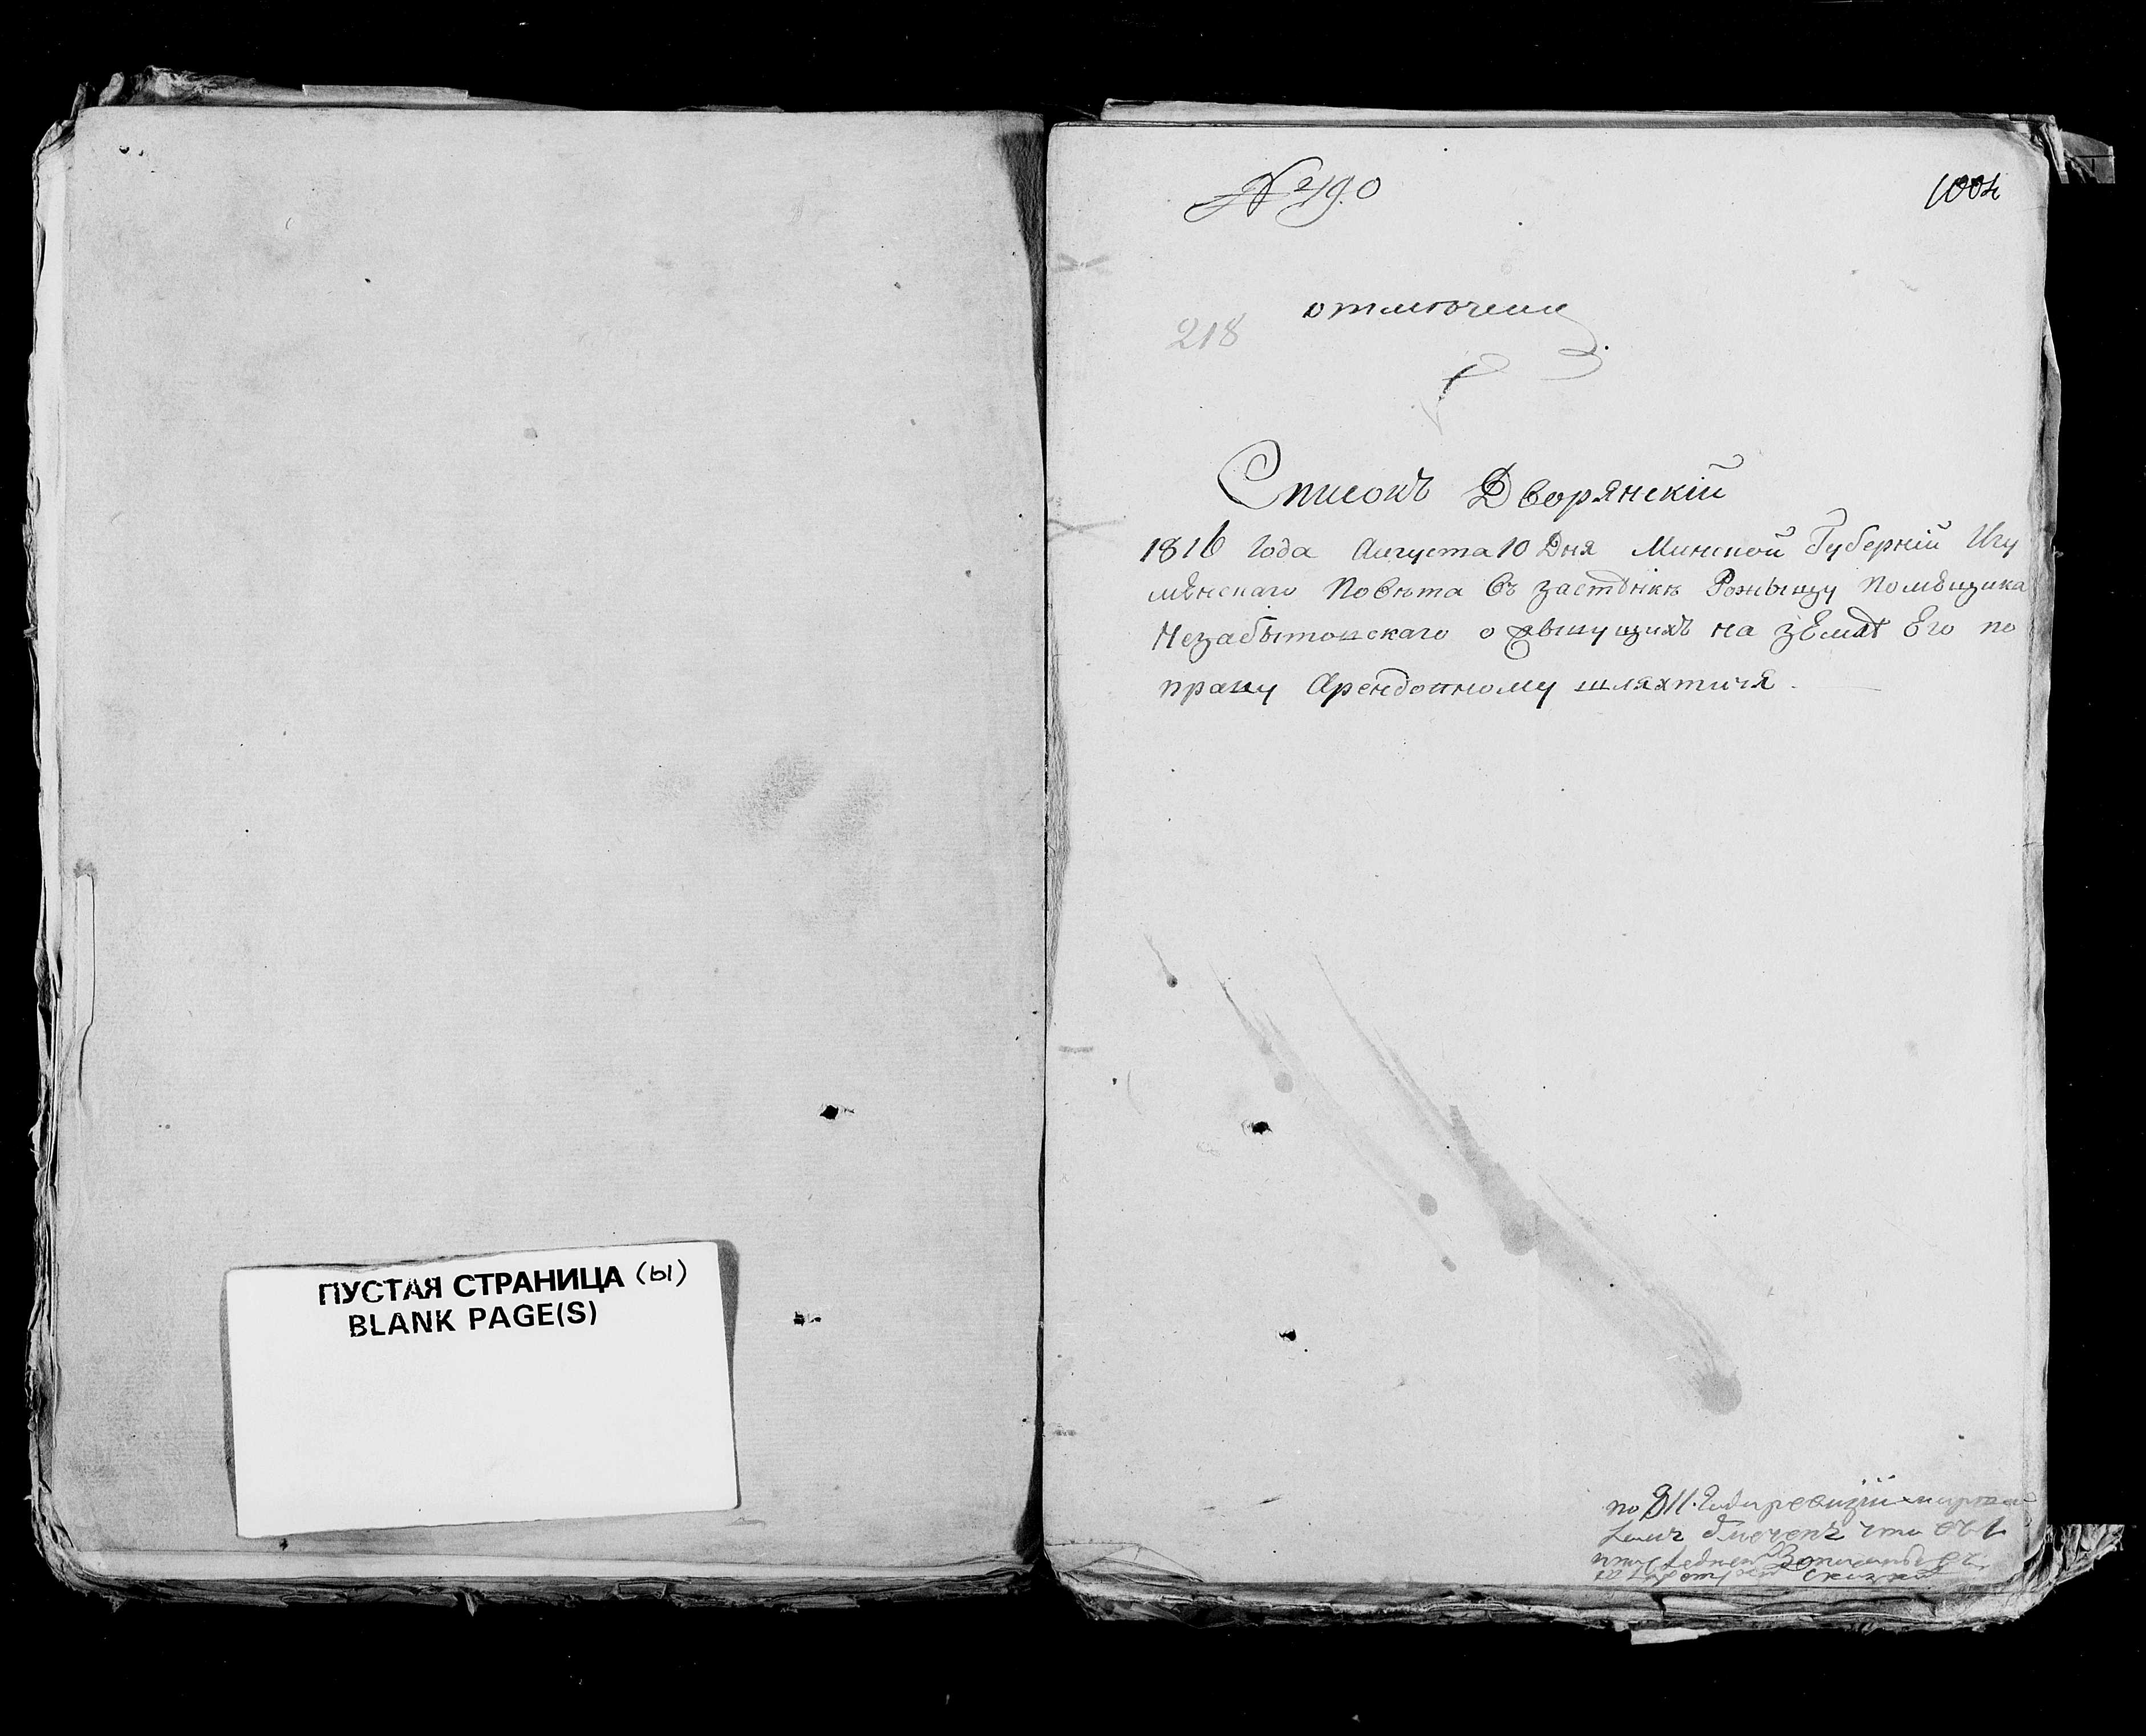 ПУСТАЯ СТРАНИЦА (ы)
BLANK PAGE(S)
№ 219.0
1004
218
отмечена
Списокъ Дворянскій
1816 года Августа 10 Дня Минской Губерніи Игу
мѣнскаго Повѣта Въ застѣнкѣ помѣщика
Незабытовскаго о живущихъ на зЕмлѣ Его по
праву Арендовному шляхтичя.
по 811. Года ревизіи
что